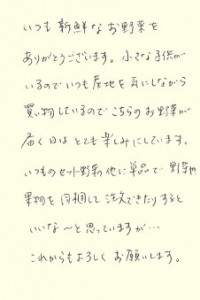 いつも新鮮なお野菜を
ありがとうございます。小さな子供が
いるのでいつも産地を気にしながら
買い物しているのでこちらのお野菜が
届く日はとても楽しみにしています。
いつものセット野菜の他に単品で野菜や
果物を同梱して注文できたりすると
いいな〜と思っていますが…
これからもよろしくお願いします。